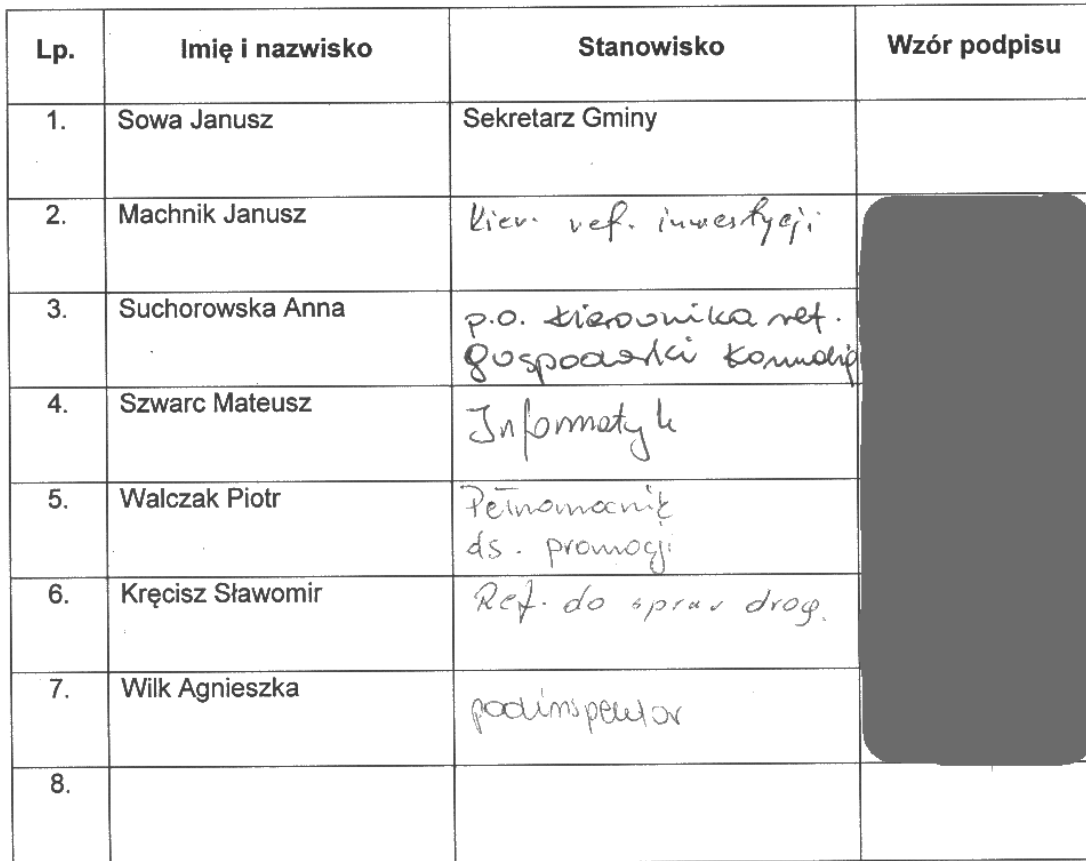 Lp. Imię i nazwisko Stanowisko Wzór podpisu
1. Sowa Janusz Sekretarz Gminy
2. Machnik Janusz Kier. ref. inwestycji
3. Suchorowska Anna p.o. kierownika ref.
gospodarki
4. Szwarc Mateusz Informatyk
5. Walczak Piotr Pełnomocnik
ds. promocji
6. Kręcisz Sławomir Ref. do spraw drog.
7. Wilk Agnieszka podinspektor
8.